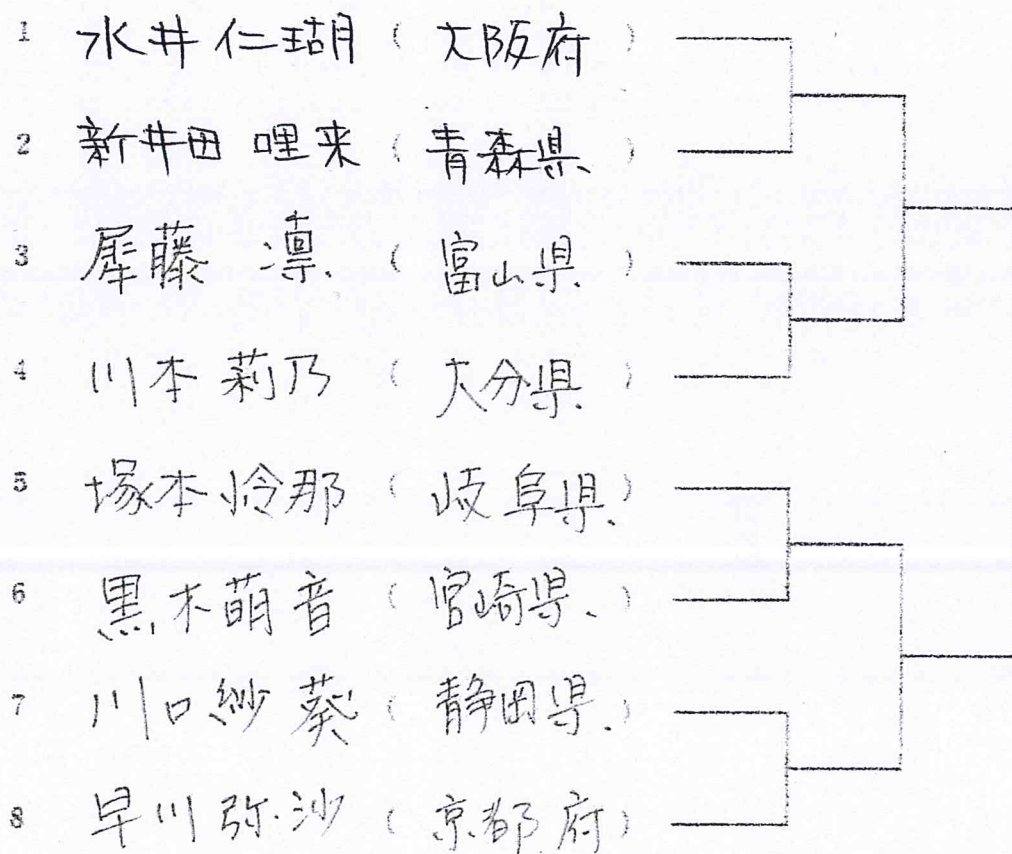 1 水井 仁瑚 (大阪府)
2 新井田 哩来 (青森県)
3 犀藤 凛 (富山県)
4 川本 莉乃 (大分県)
5 塚本 怜那 (岐阜県)
6 黒木 萌音 (宮崎県)
7 川口 紗葵 (静岡県)
8 早川 弥沙 (京都府)